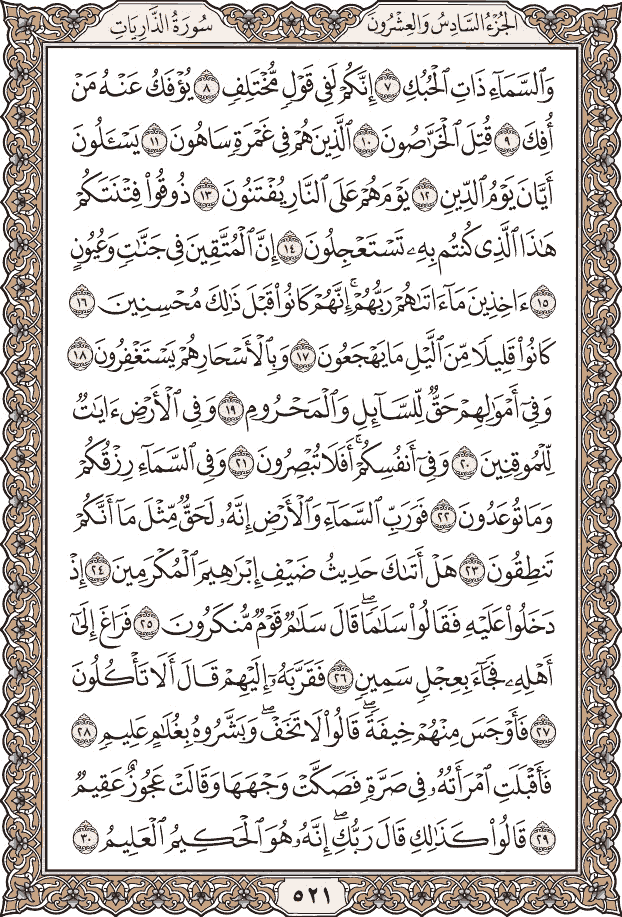 الجُزْءُ السَّادِسُ وَالعِشْرُونَ
سُورَةُ الذَّارِيَاتِ
وَٱلسَّمَآءِ ذَاتِ ٱلْحُبُكِ ٧ إِنَّكُمْ لَفِى قَوْلٍ مُّخْتَلِفٍ ٨ يُؤْفَكُ عَنْهُ مَنْ
أُفِكَ ٩ قُتِلَ ٱلْخَرَّٰصُونَ ١٠ ٱلَّذِينَ هُمْ فِى غَمْرَةٍ سَاهُونَ ١١ يَسْـَٔلُونَ
أَيَّانَ يَوْمُ ٱلدِّينِ ١٢ يَوْمَ هُمْ عَلَى ٱلنَّارِ يُفْتَنُونَ ١٣ ذُوقُوا۟ فِتْنَتَكُمْ
هَٰذَا ٱلَّذِى كُنتُم بِهِۦ تَسْتَعْجِلُونَ ١٤ إِنَّ ٱلْمُتَّقِينَ فِى جَنَّٰتٍ وَعُيُونٍ
١٥ ءَاخِذِينَ مَآ ءَاتَىٰهُمْ رَبُّهُمْ ۚ إِنَّهُمْ كَانُوا۟ قَبْلَ ذَٰلِكَ مُحْسِنِينَ ١٦
كَانُوا۟ قَلِيلًا مِّنَ ٱلَّيْلِ مَا يَهْجَعُونَ ١٧ وَبِٱلْأَسْحَارِ هُمْ يَسْتَغْفِرُونَ ١٨
وَفِىٓ أَمْوَٰلِهِمْ حَقٌّ لِّلسَّآئِلِ وَٱلْمَحْرُومِ ١٩ وَفِى ٱلْأَرْضِ ءَايَٰتٌ
لِّلْمُوقِنِينَ ٢٠ وَفِىٓ أَنفُسِكُمْ ۚ أَفَلَا تُبْصِرُونَ ٢١ وَفِى ٱلسَّمَآءِ رِزْقُكُمْ
وَمَا تُوعَدُونَ ٢٢ فَوَرَبِّ ٱلسَّمَآءِ وَٱلْأَرْضِ إِنَّهُۥ لَحَقٌّ مِّثْلَ مَآ أَنَّكُمْ
تَنطِقُونَ ٢٣ هَلْ أَتَىٰكَ حَدِيثُ ضَيْفِ إِبْرَٰهِيمَ ٱلْمُكْرَمِينَ ٢٤ إِذْ
دَخَلُوا۟ عَلَيْهِ فَقَالُوا۟ سَلَٰمًا ۖ قَالَ سَلَٰمٌ قَوْمٌ مُّنكَرُونَ ٢٥ فَرَاغَ إِلَىٰٓ
أَهْلِهِۦ فَجَآءَ بِعِجْلٍ سَمِينٍ ٢٦ فَقَرَّبَهُۥٓ إِلَيْهِمْ قَالَ أَلَا تَأْكُلُونَ
٢٧ فَأَوْجَسَ مِنْهُمْ خِيفَةً ۖ قَالُوا۟ لَا تَخَفْ ۖ وَبَشَّرُوهُ بِغُلَٰمٍ عَلِيمٍ ٢٨
فَأَقْبَلَتِ ٱمْرَأَتُهُۥ فِى صَرَّةٍ فَصَكَّتْ وَجْهَهَا وَقَالَتْ عَجُوزٌ عَقِيمٌ
٢٩ قَالُوا۟ كَذَٰلِكِ قَالَ رَبُّكِ ۖ إِنَّهُۥ هُوَ ٱلْحَكِيمُ ٱلْعَلِيمُ ٣٠
٥٢١